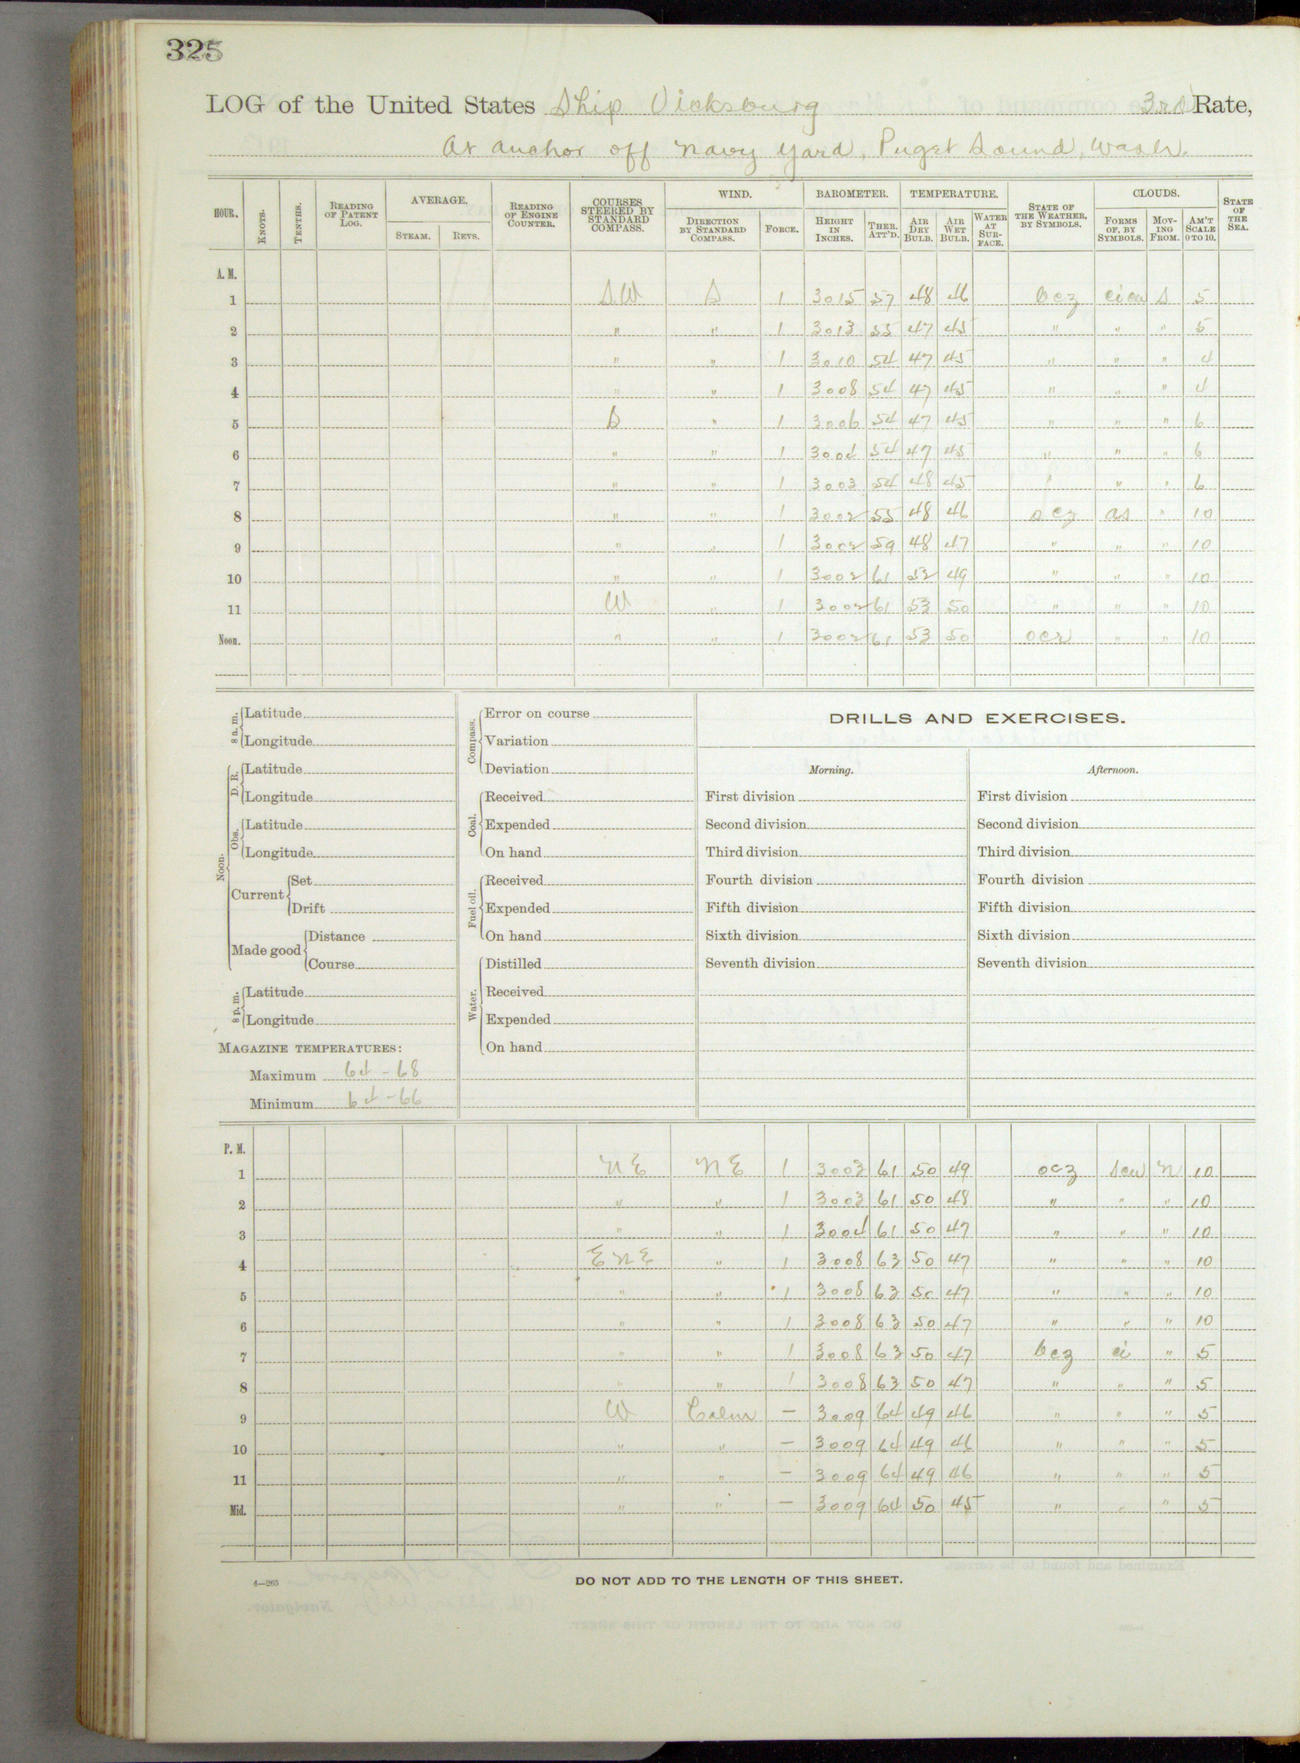 325
LOG of the United States Ship Vicksburg 3rd Rate,
At anchor off Navy Yard, Puget Sound, Wash.
HOUR. KNOTS. TENTHS. READING OF PATENT LOG. AVERAGE. STEAM. REVS. READING OF ENGINE COUNTER. COURSES STEERED BY STANDARD COMPASS. WIND. DIRECTION BY STANDARD COMPASS. FORCE. BAROMETER. HEIGHT IN INCHES. THER. ATT'D. TEMPERATURE. AIR DRY BULB. AIR WET BULB. WATER AT SURFACE. STATE OF THE WEATHER, BY SYMBOLS. CLOUDS. FORMS OF, BY SYMBOLS. MOVING FROM. AM'T SCALE 0 TO 10. STATE OF THE SEA.
A. M.
1 SW S 1 3015 57 48 46 bcz cicu S 5
2 " " 1 3013 55 47 45 " " " 5
3 " " 1 3010 54 47 45 " " " 4
4 " " 1 3008 54 47 45 " " " 4
5 S " 1 3006 54 47 45 " " " 6
6 " " 1 3004 54 47 45 " " " 6
7 " " 1 3003 54 48 45 " " " 6
8 " " 1 3002 55 48 46 ocz as " 10
9 " " 1 3002 59 48 47 " " " 10
10 " " 1 3002 61 52 49 " " " 10
11 W " 1 3002 61 53 50 " " " 10
Noon. " " 1 3002 61 53 50 ocr " " 10
8 a. m. Latitude
Longitude
Noon. D. R. Latitude
Longitude
Obs. Latitude
Longitude
Current Set
Drift
Made good Distance
Course
8 p. m. Latitude
Longitude
MAGAZINE TEMPERATURES:
Maximum 64 - 68
Minimum 64 - 66
Compass. Error on course
Variation
Deviation
Coal. Received
Expended
On hand
Fuel oil. Received
Expended
On hand
Water. Distilled
Received
Expended
On hand
DRILLS AND EXERCISES.
Morning. Afternoon.
First division First division
Second division Second division
Third division Third division
Fourth division Fourth division
Fifth division Fifth division
Sixth division Sixth division
Seventh division Seventh division
P. M.
1 NE NE 1 3003 61 50 49 ocz scu N 10
2 " " 1 3003 61 50 48 " " " 10
3 " " 1 3004 61 50 47 " " " 10
4 ENE " 1 3008 63 50 47 " " " 10
5 " " 1 3008 63 50 47 " " " 10
6 " " 1 3008 63 50 47 " " " 10
7 " " 1 3008 63 50 47 bcz ci " 5
8 " " 1 3008 63 50 47 " " " 5
9 W Calm — 3009 64 49 46 " " " 5
10 " " — 3009 64 49 46 " " " 5
11 " " — 3009 64 49 46 " " " 5
Mid. " " — 3009 64 50 45 " " " 5
4—265
DO NOT ADD TO THE LENGTH OF THIS SHEET.